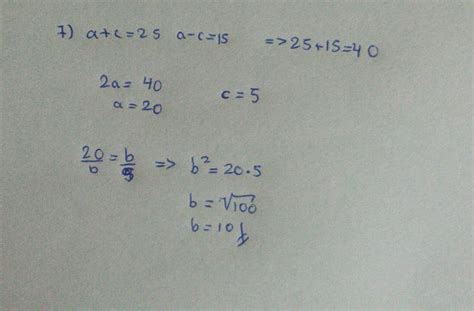 7) a+c=25 a-c=15 => 25+15=40
2a= 40
a=20 c=5
20/b = b/5 => b²=20·5
b=√100
b=10